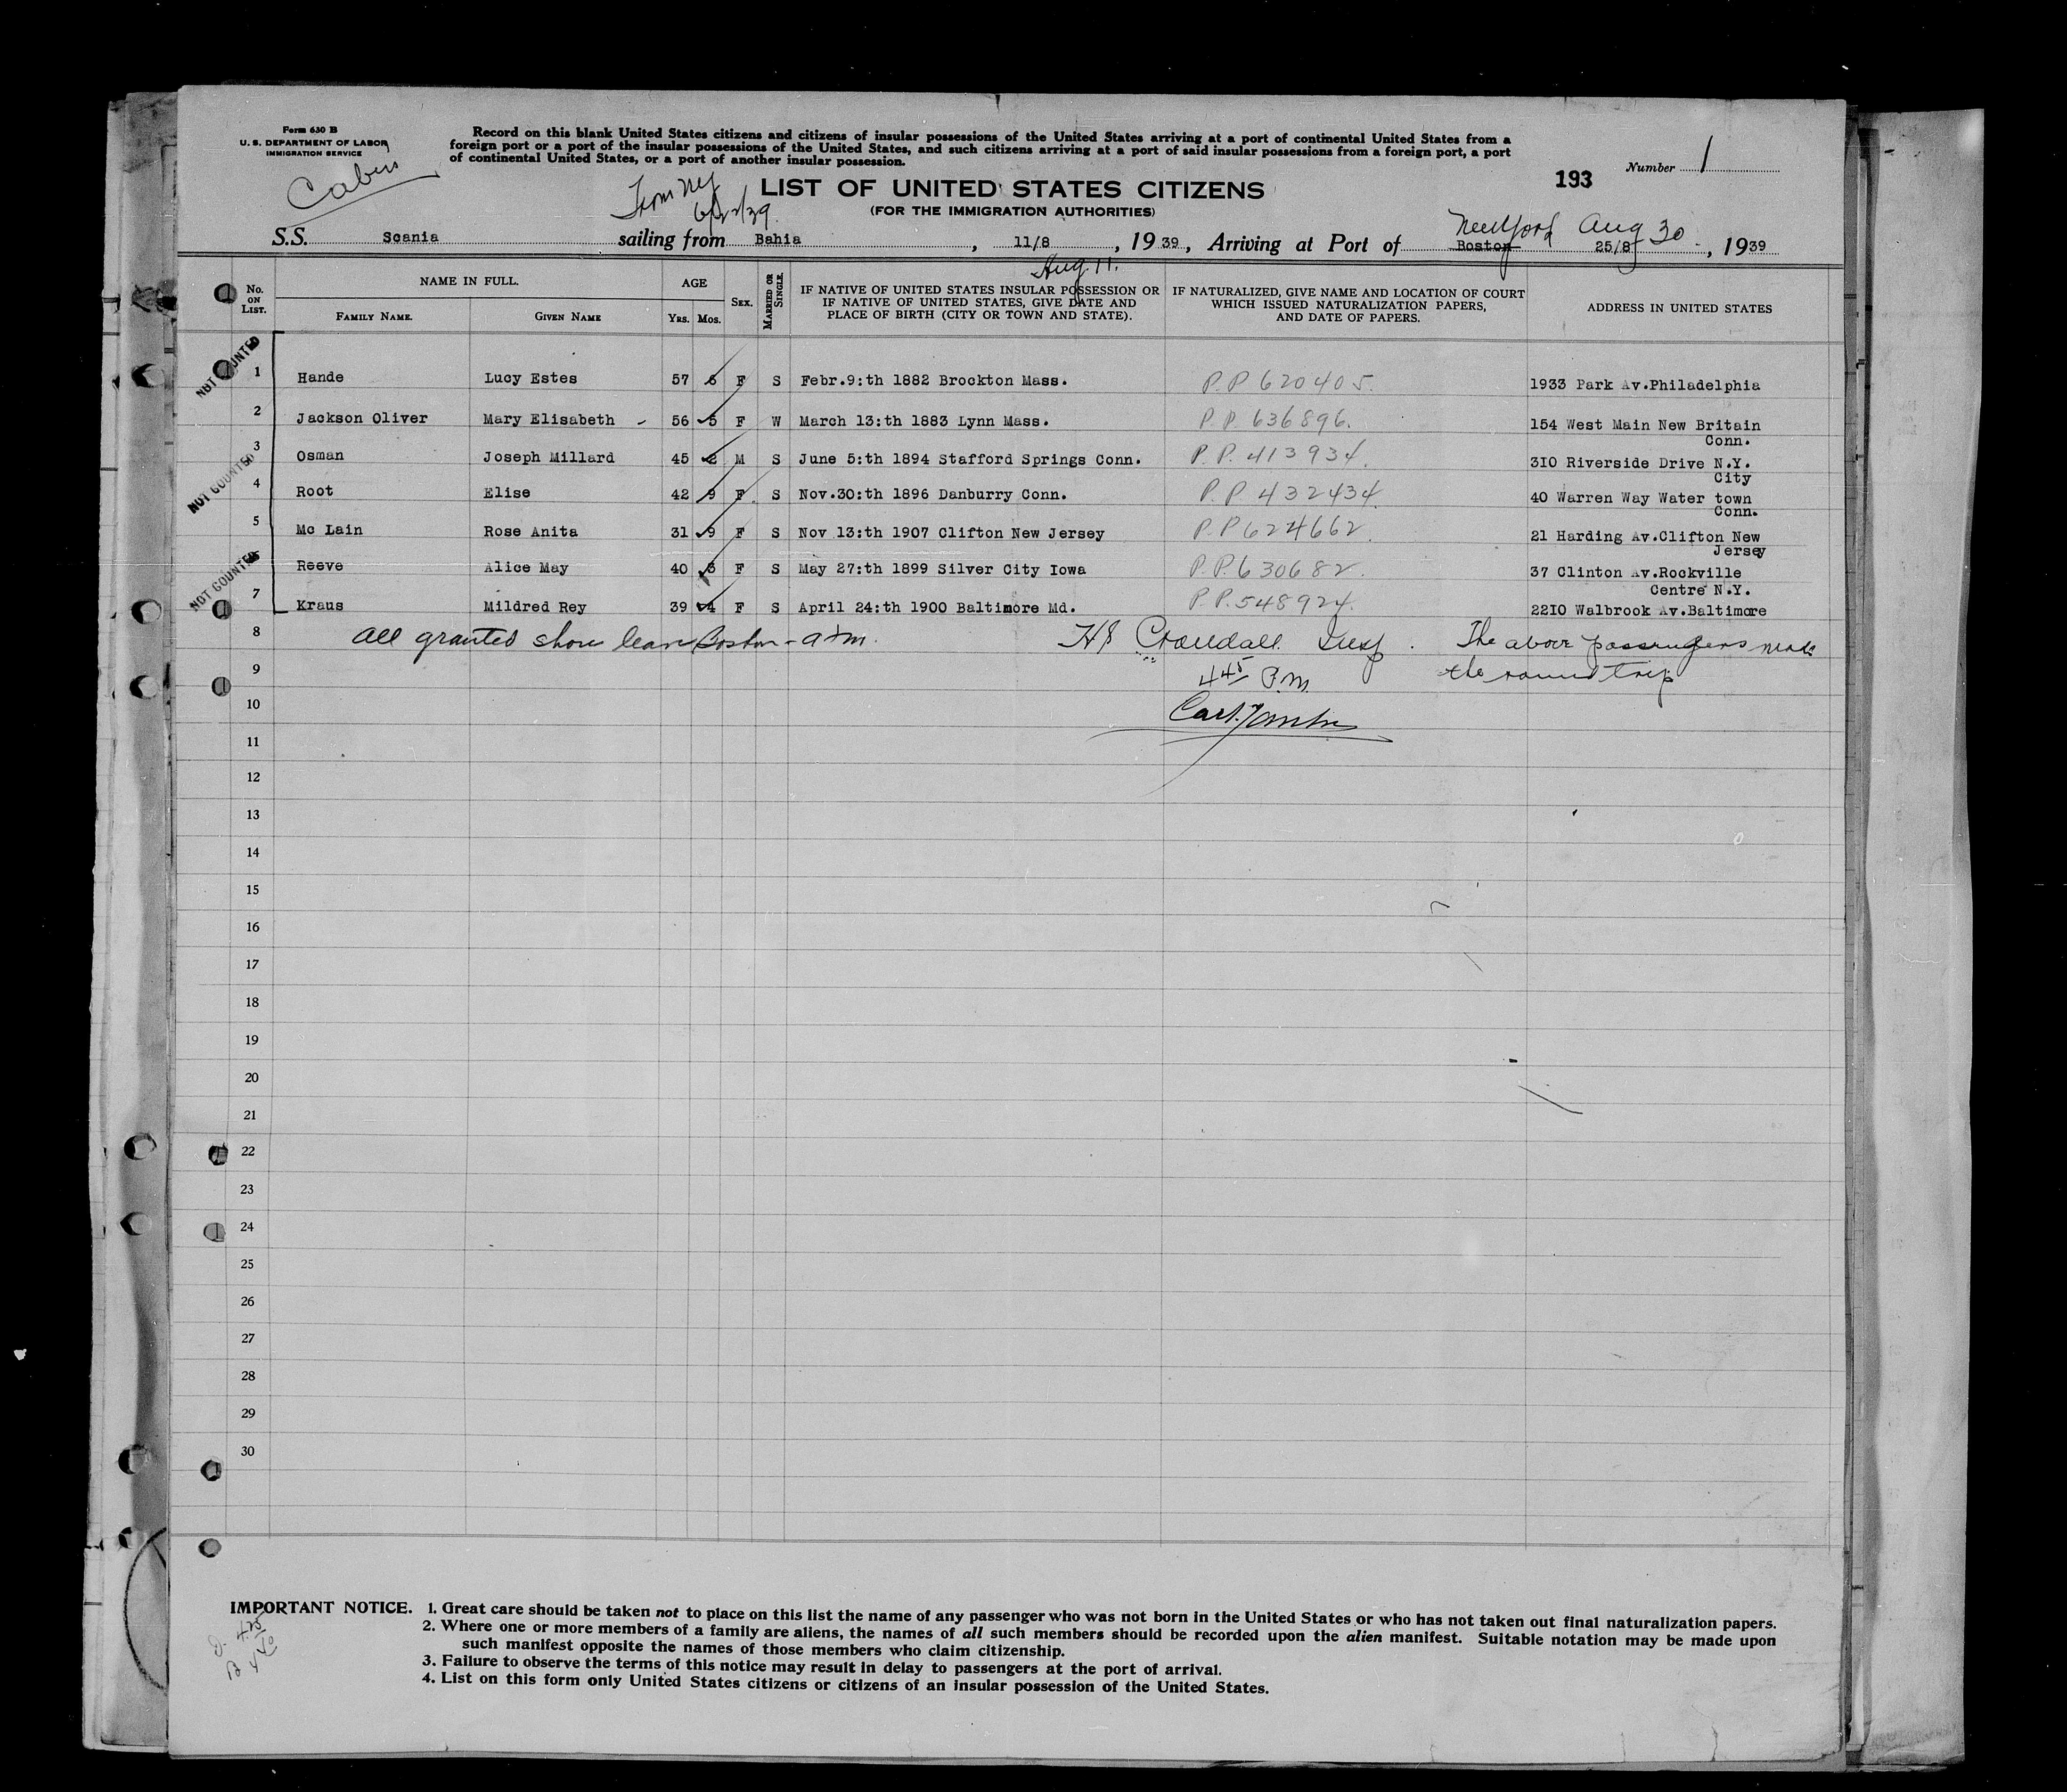 Form 630 B
U. S. DEPARTMENT OF LABOR
IMMIGRATION SERVICE
Cabin
Record on this blank United States citizens and citizens of insular possessions of the United States arriving at a port of continental United States from a
foreign port or a port of the insular possessions of the United States, and such citizens arriving at a port of said insular possessions from a foreign port, a port
of continental United States, or a port of another insular possession.
Number 1
193
From NY
LIST OF UNITED STATES CITIZENS
(FOR THE IMMIGRATION AUTHORITIES)
New York Aug 30
S.S. Scania sailing from Bahia, 11/8, 1939, Arriving at Port of Boston 25/8, 1939
Aug. 11.
No. ON LIST. NAME IN FULL. FAMILY NAME. GIVEN NAME AGE Yrs. Mos. SEX. MARRIED OR SINGLE. IF NATIVE OF UNITED STATES INSULAR POSSESSION OR IF NATIVE OF UNITED STATES, GIVE DATE AND PLACE OF BIRTH (CITY OR TOWN AND STATE). IF NATURALIZED, GIVE NAME AND LOCATION OF COURT WHICH ISSUED NATURALIZATION PAPERS, AND DATE OF PAPERS. ADDRESS IN UNITED STATES
NOT COUNTED
1 Hande Lucy Estes 57 6 F S Febr.9:th 1882 Brockton Mass. P.P 620405. 1933 Park Av.Philadelphia
2 Jackson Oliver Mary Elisabeth 56 5 F W March 13:th 1883 Lynn Mass. P.P. 636896. 154 West Main New Britain
Conn.
NOT COUNTED
3 Osman Joseph Millard 45 2 M S June 5:th 1894 Stafford Springs Conn. P.P. 413934. 310 Riverside Drive N.Y.
City
4 Root Elise 42 9 F S Nov.30:th 1896 Danburry Conn. P.P. 432434. 40 Warren Way Water town
Conn.
5 Mc Lain Rose Anita 31 9 F S Nov 13:th 1907 Clifton New Jersey P.P 624662. 21 Harding Av.Clifton New
Jersey
NOT COUNTED
Reeve Alice May 40 3 F S May 27:th 1899 Silver City Iowa P.P. 630682. 37 Clinton Av.Rockville
Centre N.Y.
7 Kraus Mildred Rey 39 4 F S April 24:th 1900 Baltimore Md. P.P. 548924. 2210 Walbrook Av.Baltimore
8 All granted shore leave Boston Crandall Insp. The above passengers made
9 4 45 P.M. the round trip
10
11
12
13
14
15
16
17
18
19
20
21
22
23
24
25
26
27
28
29
30
IMPORTANT NOTICE. 1. Great care should be taken not to place on this list the name of any passenger who was not born in the United States or who has not taken out final naturalization papers.
2. Where one or more members of a family are aliens, the names of all such members should be recorded upon the alien manifest. Suitable notation may be made upon
such manifest opposite the names of those members who claim citizenship.
3. Failure to observe the terms of this notice may result in delay to passengers at the port of arrival.
4. List on this form only United States citizens or citizens of an insular possession of the United States.